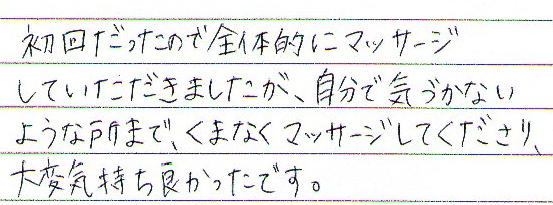 初回だったので全体的にマッサージ
していただきましたが、自分で気づかない
ような所まで、くまなくマッサージしてくださり、
大変気持ち良かったです。